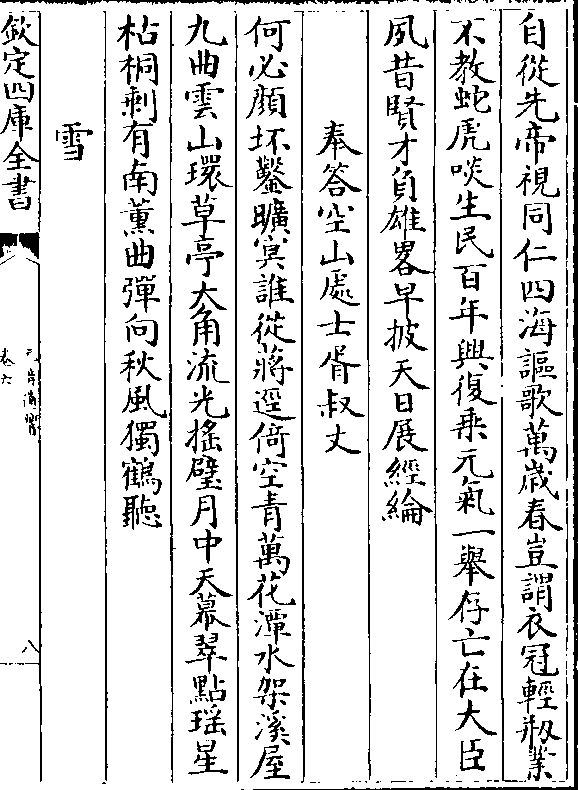 自從先帝視同仁四海謳歌萬歳春豈謂衣冠輕剏業
不教蛇虎啖生民百年興復乗元氣一舉存亡在大臣
夙昔賢才負雄畧早披天日展經綸
奉答空山處士胥叔丈
何必顔坏鑿曠㝠誰從蔣逕倚空青萬花潭水架溪屋
九曲雲山環草亭大角流光搖璧月中天幕翠點瑶星
枯桐剩有南薰曲彈向秋風獨鶴聽
雪
欽定四庫全書
卷六
八